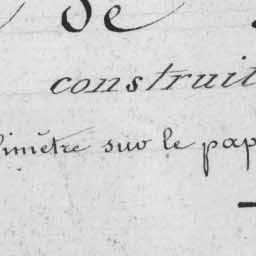 de
construit
imètre sur le pap